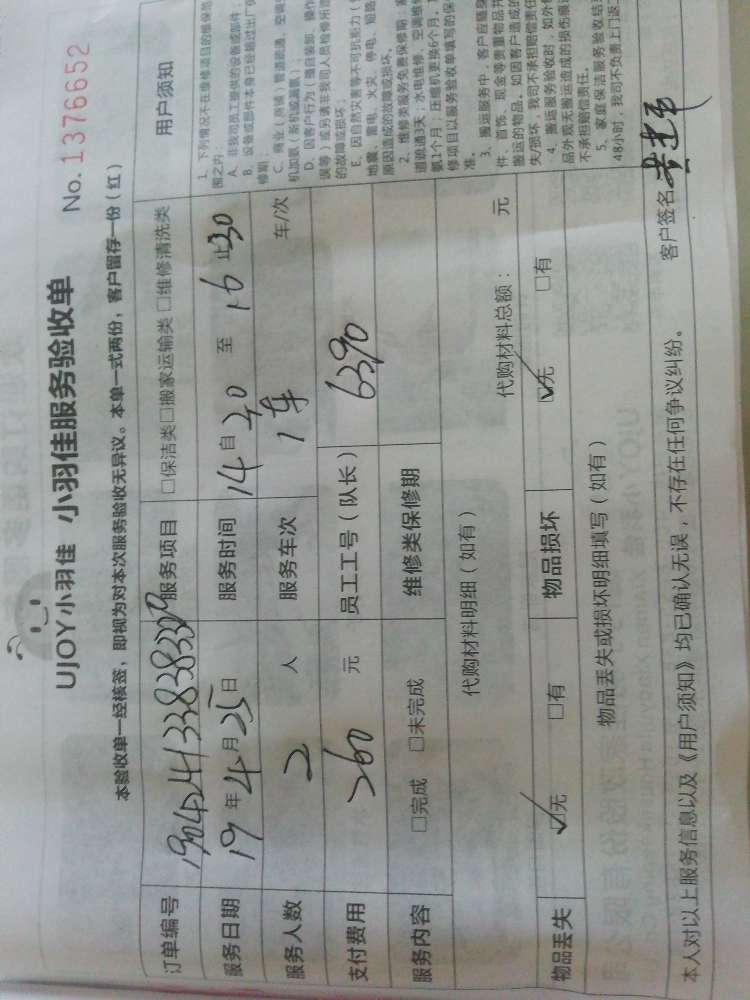 UJOY小羽佳 小羽佳服务验收单
No. 1376652
本验收单一经核签，即视为对本次服务验收无异议。本单一式两份，客户留存一份（红）
订单编号 服务项目 □保洁类□搬家运输类□维修清洗类
服务日期 19年4月25日 服务时间 14自30至16止30
服务人数 2人 服务车次 1车 车/次
支付费用 260元 员工工号（队长） 6390
服务内容 □完成 □未完成 维修类保修期
代购材料明细（如有） 代购材料总额： 元
物品丢失 ☑无 □有 物品损坏 ☑无 □有
物品丢失或损坏明细填写（如有）
本人对以上服务信息以及《用户须知》均已确认无误，不存在任何争议纠纷。 客户签名
用户须知
1、下列情况不在维修项目的维保范
围之内：
A、非我司员工提供的设备或部件；
B、设备或部件本身已经超过出厂
修期
C、商业（商铺）管道疏通、空调
机加氨（新机或满氨）；
D、因客户行为（擅自装卸、操作
误等）或务请非我司人员检修所造
的故障或损坏；
E、因自然灾害等不可抗拒力（
地震、雷电、火灾、停电、短路
原因造成的故障或损坏。
2、维修类服务免费保修期：
道疏通3天；水电维修、空调
氨1个月；压缩机更换6个月；
修项目以服务验收单填写的保
准。
3、搬运服务中，客户应随身
件、首饰、现金等贵重物品并
搬运的物品，如因客户造成的
失/损坏，我司不承担赔偿责任
4、搬运服务验收时，如外包
品外观无搬运造成的损伤痕
不承担赔偿责任。
5、家庭保洁服务验收结束
48小时，我司不负责上门返